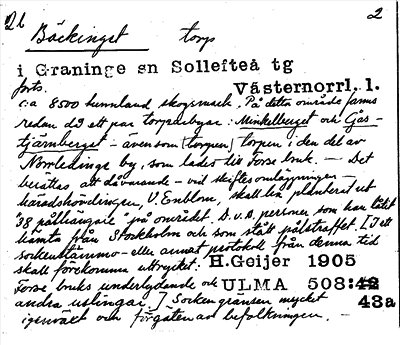 Db 2
Bäckinget torp
i Graninge sn Sollefteå tg
Västernorrl. l.
forts.
c:a 8500 tunnland skogsmark. På detta område fanns
redan då ett par torparbyar: Minkelberget och Gås-
tjärnberget - även som (torpen) torpen i den del av
Norrtedinge by, som lades till Forse bruk. - Det
berättas, att dåvarande - vid skiftesomläggningen -
häradshövdingen, V. Enblom, skall ha planterat ut
"38 pålhängare" på området. D.v.s. personer som han låtit
hämta från Stockholm och som stått pålstraffet. [I ett
sockenstämmo- eller annat protokoll från denna tid
skall förekomma uttrycket:
H.Geijer 1905
Forse bruks underlydande och
ULMA 508:42
43a
andra uslingar.] Sockengränsen mycket
igenväxt och förgäten av befolkningen. -